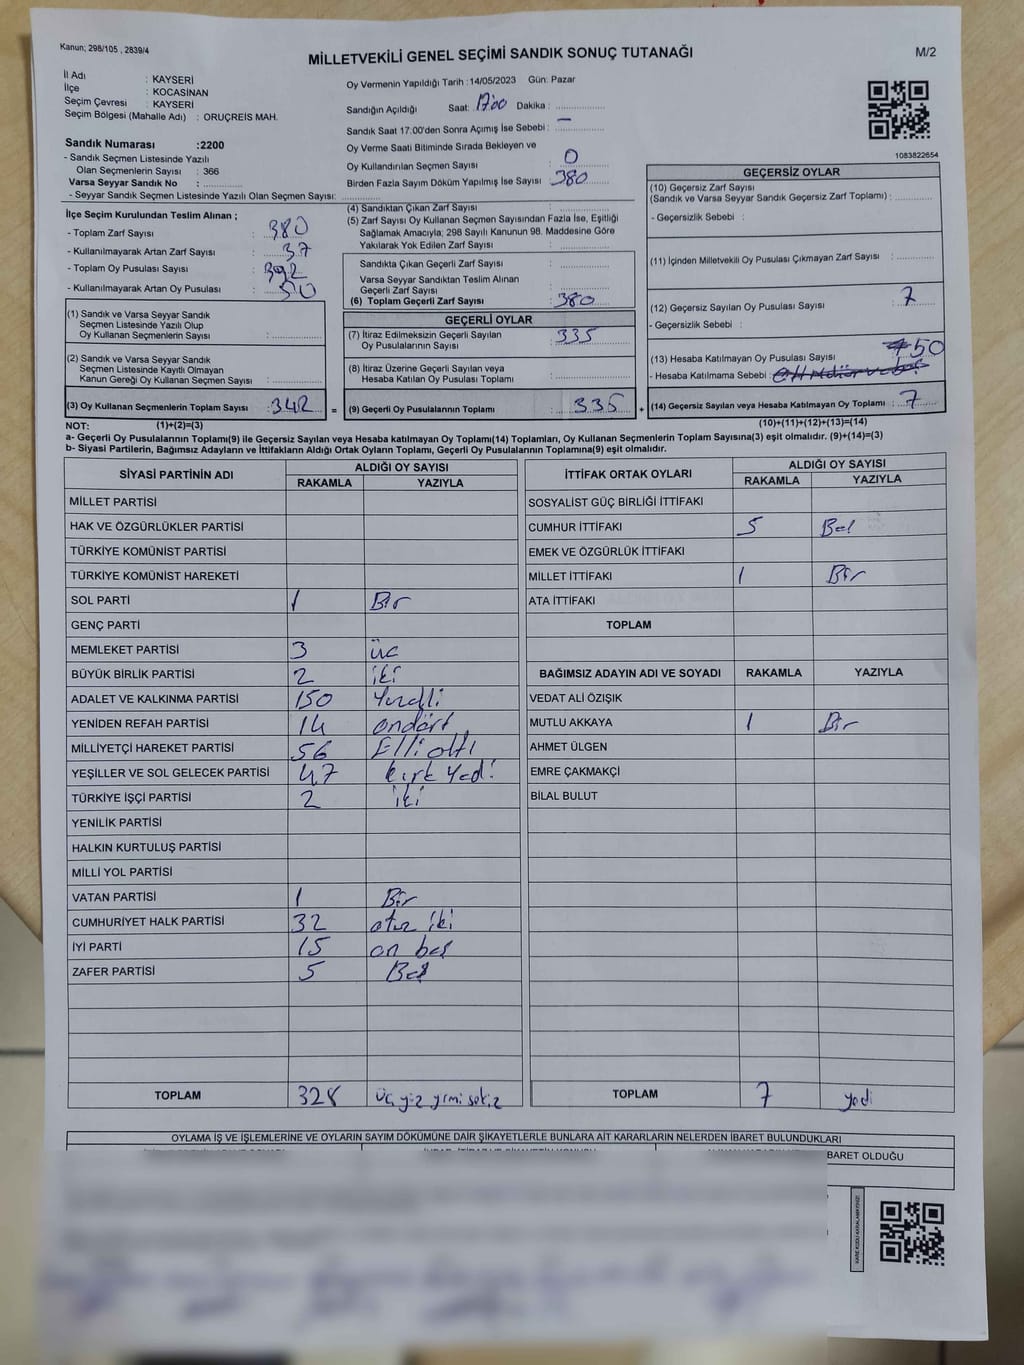 Kanun; 298/105 , 2839/4
MİLLETVEKİLİ GENEL SEÇİMİ SANDIK SONUÇ TUTANAĞI
M/2
İl Adı : KAYSERİ
İlçe : KOCASİNAN
Seçim Çevresi : KAYSERİ
Seçim Bölgesi (Mahalle Adı) : ORUÇREİS MAH.
Sandık Numarası :2200
- Sandık Seçmen Listesinde Yazılı
Olan Seçmenlerin Sayısı : 366
Varsa Seyyar Sandık No :
- Seyyar Sandık Seçmen Listesinde Yazılı Olan Seçmen Sayısı:
Oy Vermenin Yapıldığı Tarih :14/05/2023 Gün: Pazar
Sandığın Açıldığı Saat: 17:00 Dakika :
Sandık Saat 17.00'den Sonra Açımış İse Sebebi : —
Oy Verme Saati Bitiminde Sırada Bekleyen ve
Oy Kullandırılan Seçmen Sayısı : 0
Birden Fazla Sayım Döküm Yapılmış İse Sayısı : 380
1083822654
İlçe Seçim Kurulundan Teslim Alınan ;
- Toplam Zarf Sayısı : 380
- Kullanılmayarak Artan Zarf Sayısı : 37
- Toplam Oy Pusulası Sayısı : 392
- Kullanılmayarak Artan Oy Pusulası : 50
(1) Sandık ve Varsa Seyyar Sandık
Seçmen Listesinde Yazılı Olup
Oy Kullanan Seçmenlerin Sayısı :
(2) Sandık ve Varsa Seyyar Sandık
Seçmen Listesinde Kayıtlı Olmayan
Kanun Gereği Oy Kullanan Seçmen Sayısı :
(3) Oy Kullanan Seçmenlerin Toplam Sayısı : 342 =
(4) Sandıktan Çıkan Zarf Sayısı :
(5) Zarf Sayısı Oy Kullanan Seçmen Sayısından Fazla İse, Eşitliği
Sağlamak Amacıyla; 298 Sayılı Kanunun 98. Maddesine Göre
Yakılarak Yok Edilen Zarf Sayısı :
Sandıkta Çıkan Geçerli Zarf Sayısı :
Varsa Seyyar Sandıktan Teslim Alınan
Geçerli Zarf Sayısı :
(6) Toplam Geçerli Zarf Sayısı : 380
GEÇERLİ OYLAR
(7) İtiraz Edilmeksizin Geçerli Sayılan 335
Oy Pusulalarının Sayısı :
(8) İtiraz Üzerine Geçerli Sayılan veya
Hesaba Katılan Oy Pusulası Toplamı :
(9) Geçerli Oy Pusulalarının Toplamı : 335 +
GEÇERSİZ OYLAR
(10) Geçersiz Zarf Sayısı
(Sandık ve Varsa Seyyar Sandık Geçersiz Zarf Toplamı) :
- Geçersizlik Sebebi :
(11) İçinden Milletvekili Oy Pusulası Çıkmayan Zarf Sayısı :
(12) Geçersiz Sayılan Oy Pusulası Sayısı : 7
- Geçersizlik Sebebi :
(13) Hesaba Katılmayan Oy Pusulası Sayısı 50
- Hesaba Katılmama Sebebi :
(14) Geçersiz Sayılan veya Hesaba Katılmayan Oy Toplamı : 7
NOT: (1)+(2)=(3)
(10)+(11)+(12)+(13)=(14)
a- Geçerli Oy Pusulalarının Toplamı(9) ile Geçersiz Sayılan veya Hesaba katılmayan Oy Toplamı(14) Toplamları, Oy Kullanan Seçmenlerin Toplam Sayısına(3) eşit olmalıdır. (9)+(14)=(3)
b- Siyasi Partilerin, Bağımsız Adayların ve İttifakların Aldığı Ortak Oyların Toplamı, Geçerli Oy Pusulalarının Toplamına(9) eşit olmalıdır.
SİYASİ PARTİNİN ADI
ALDIĞI OY SAYISI
RAKAMLA YAZIYLA
MİLLET PARTİSİ
HAK VE ÖZGÜRLÜKLER PARTİSİ
TÜRKİYE KOMÜNİST PARTİSİ
TÜRKİYE KOMÜNİST HAREKETİ
SOL PARTİ 1 Bir
GENÇ PARTİ
MEMLEKET PARTİSİ 3 üç
BÜYÜK BİRLİK PARTİSİ 2 iki
ADALET VE KALKINMA PARTİSİ 150 Yüzelli
YENİDEN REFAH PARTİSİ 14 ondört
MİLLİYETÇİ HAREKET PARTİSİ 56 Elli altı
YEŞİLLER VE SOL GELECEK PARTİSİ 47 kırk Yedi
TÜRKİYE İŞÇİ PARTİSİ 2 iki
YENİLİK PARTİSİ
HALKIN KURTULUŞ PARTİSİ
MİLLİ YOL PARTİSİ
VATAN PARTİSİ 1 Bir
CUMHURİYET HALK PARTİSİ 32 otuz iki
İYİ PARTİ 15 on beş
ZAFER PARTİSİ 5 Beş
TOPLAM 328 üç yüz yirmi sekiz
İTTİFAK ORTAK OYLARI
ALDIĞI OY SAYISI
RAKAMLA YAZIYLA
SOSYALİST GÜÇ BİRLİĞİ İTTİFAKI
CUMHUR İTTİFAKI 5 Beş
EMEK VE ÖZGÜRLÜK İTTİFAKI
MİLLET İTTİFAKI 1 Bir
ATA İTTİFAKI
TOPLAM
BAĞIMSIZ ADAYIN ADI VE SOYADI RAKAMLA YAZIYLA
VEDAT ALİ ÖZIŞIK
MUTLU AKKAYA 1 Bir
AHMET ÜLGEN
EMRE ÇAKMAKÇİ
BİLAL BULUT
TOPLAM 7 yedi
OYLAMA İŞ VE İŞLEMLERİNE VE OYLARIN SAYIM DÖKÜMÜNE DAİR ŞİKAYETLERLE BUNLARA AİT KARARLARIN NELERDEN İBARET BULUNDUKLARI
BARET OLDUĞU